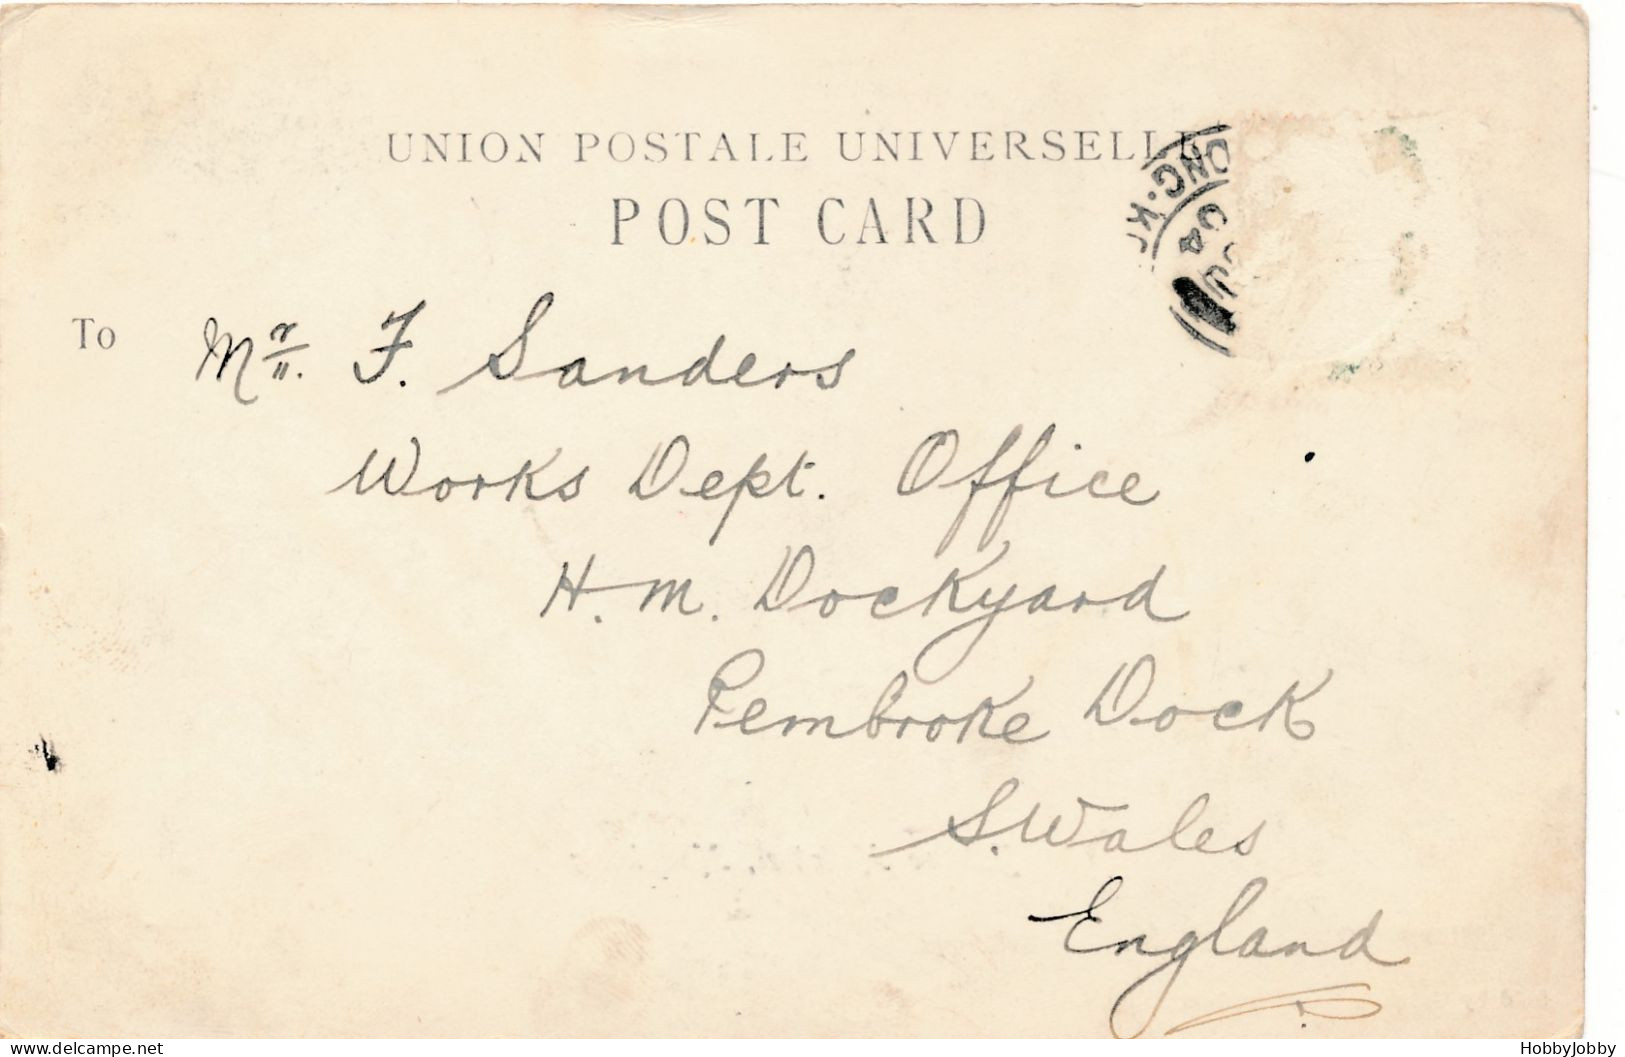 UNION POSTALE UNIVERSELLE
POST CARD
To Mr. F. Sanders
Works Dept. Office
H.M. Dockyard
Pembroke Dock
S. Wales
England
HobbyJobby